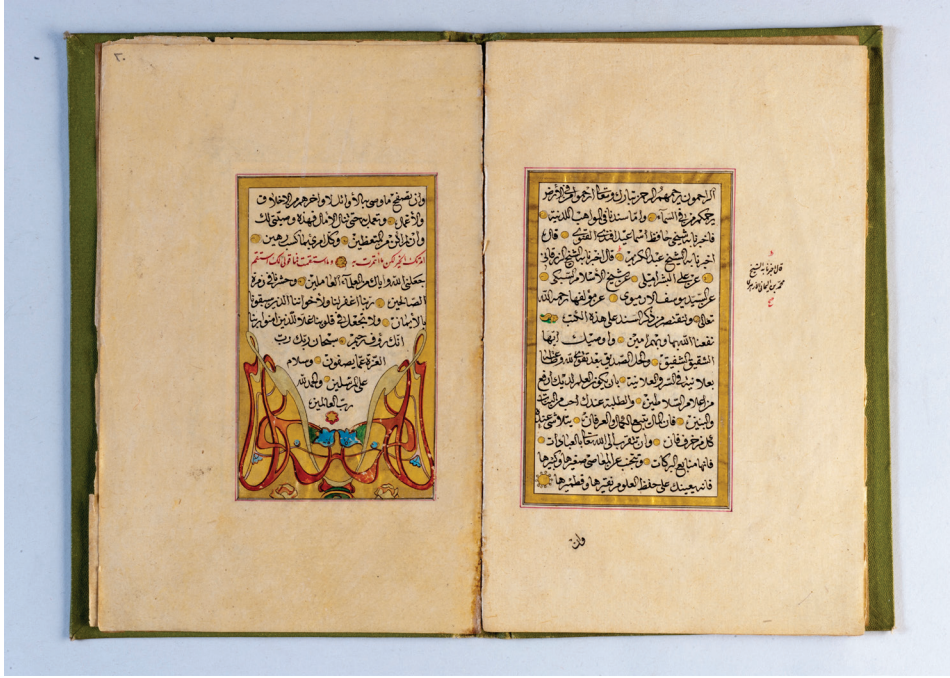 الراحمون يرحمهم الرحمن تبارك وتعالى ارحموا من في الأرض
يرحمكم من في السماء واما سندنا في المواهب اللدنية
فاخبرنا به شيخي حافظ اسماعيل افندي القنوي قال
اخبرنا به الشيخ عبد الكريم قال اخبرنا به الشيخ الزرقاني
عن علي الشبراملسي عن شيخ الاسلام السبكي
عن السيد يوسف الارميوني عن مؤلفها رحمه الله
تعالى ولنقتصر من ذكر السند على هذه الكتب
نفعنا الله بها وبهم امين واوصيك ايها
الشقيق الشفيق والخل الصديق بعد تقوى الله
بعلانيته في السر والعلانية بان يكون العلم لديك ارفع
من اعلام السلاطين والطلبة عندك احب من
والبنين فان المال والعرفان يتلاشى عنده
كل من خرف فان وان تتقرب الى الله تعالى بالعبادات
فانها منابع البركات وتجتنب عن المعاصي صغيرها وكبيرها
فانه يعينك على حفظ العلوم نقيرها وقطميرها
وان
قال اخبرنا به الشيخ
محمد بن
صح
٣٠
وان تصفح ما وصى به الأوائل لاواخرهم من الاخلاق
والاعمال وتعمل حتى تنال الامال فهذه وصيتي لك
وان من المتعظين وكل امرئ بما كسب رهين
امرتك الخير لكن ما ائتمرت به وما استقمت فما قولي لك استقم
جعلني الله واياك من العلماء العاملين وحشرنا في زمرة
الصالحين ربنا اغفر لنا ولاخواننا الذين سبقونا
بالايمان ولا تجعل في قلوبنا غلا للذين امنوا ربنا
انك رؤف رحيم سبحان ربك رب
العزة عما يصفون وسلام
على المرسلين والحمد لله
رب العالمين